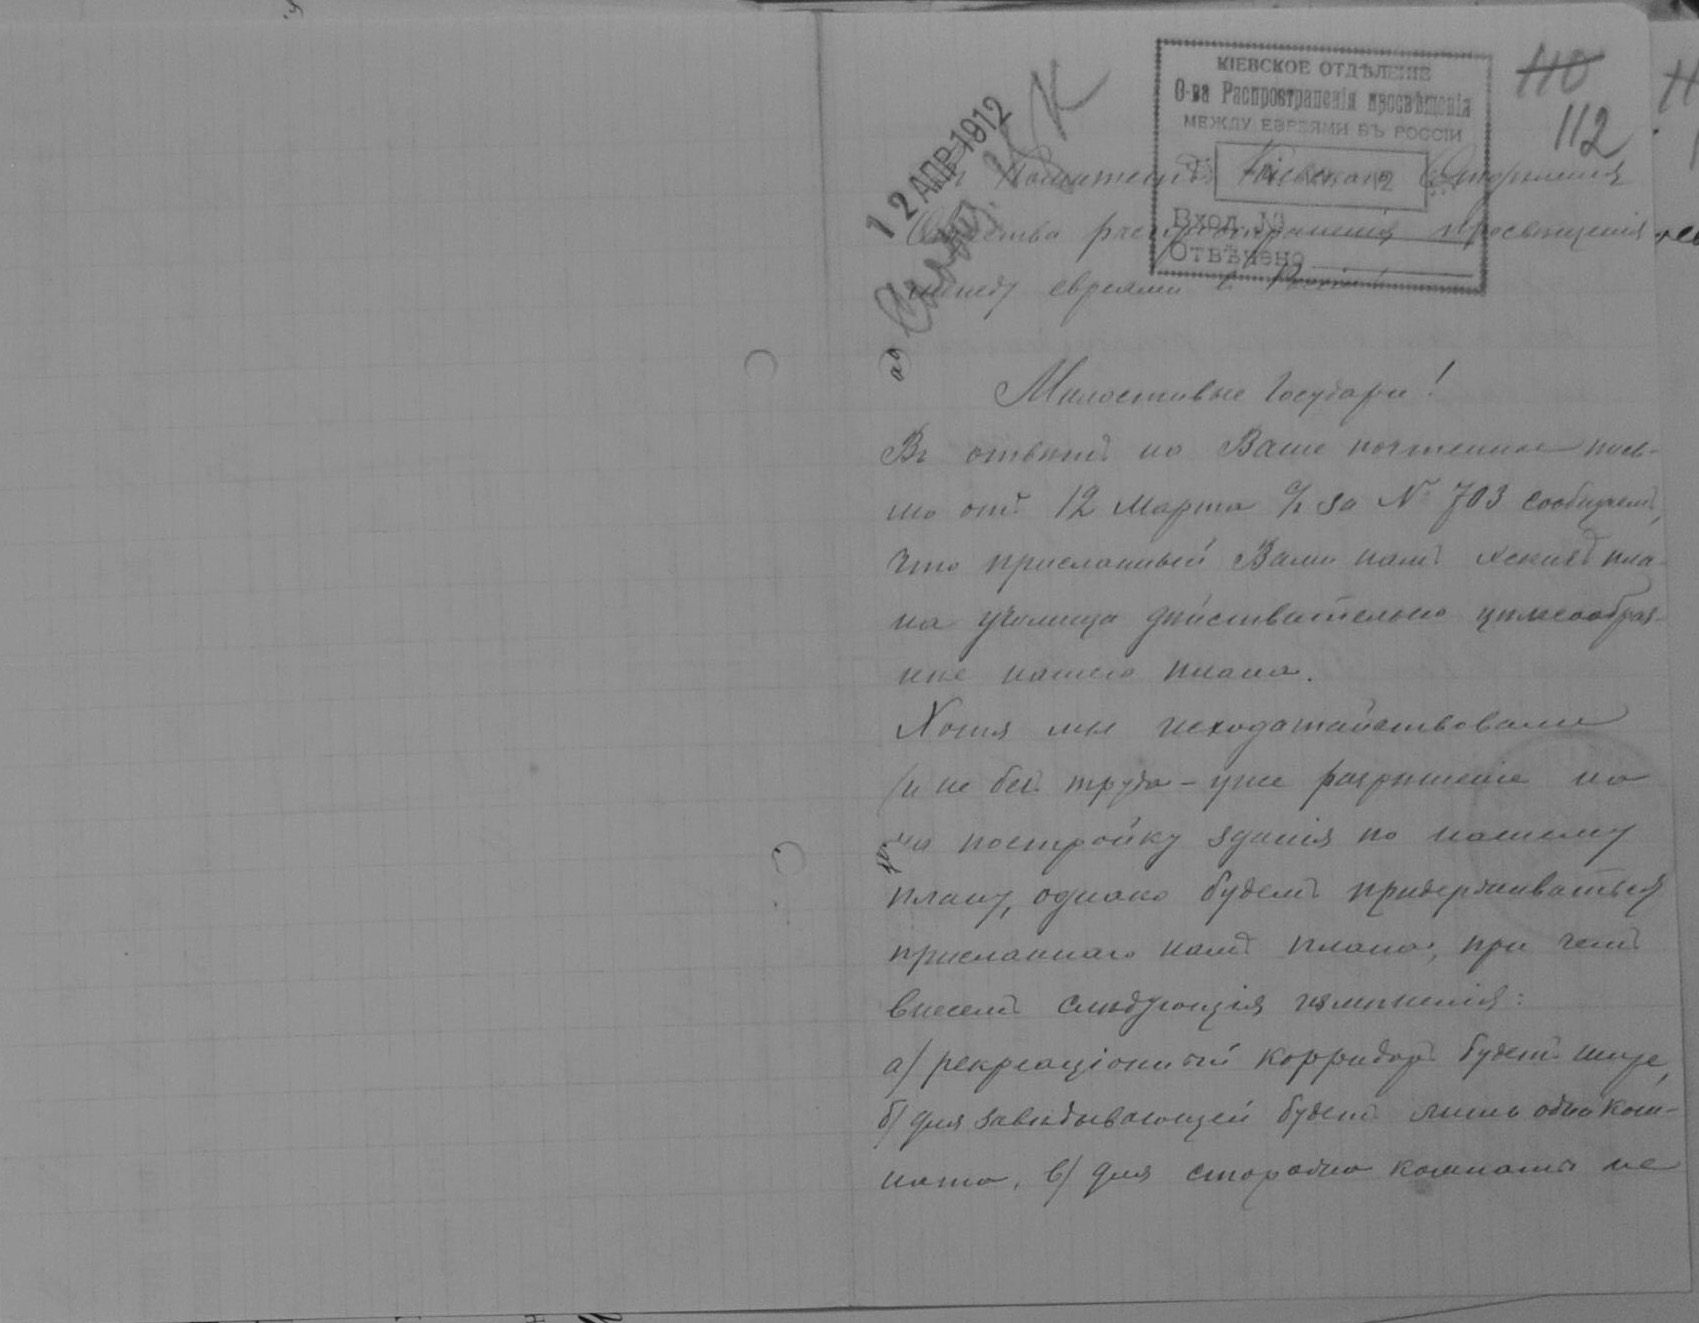 КІЕВСКОЕ ОТДѢЛЕНІЕ
О-ва Распространенія просвѣщенія
МЕЖДУ ЕВРЕЯМИ ВЪ РОССІИ
Вход. №
Отвѣчено
110
112
12 АПР 1912
Комитетъ Кіевскаго Отдѣленія
Общества распространенія просвѣщенія
между евреями в Россіи
Милостивые Государи!
Въ отвѣтъ на Ваше почтенное пись-
мо отъ 12 Марта с/г за № 703 сообщаемъ,
что присланный Вами намъ эскизъ пла-
на училища дѣйствительно цѣлесообраз-
нѣе нашего плана.
Хотя мы исходатайствовали
(и не безъ труда – уже разрѣшеніе на
на постройку зданія по нашему
плану, однако будемъ придерживаться
присланнаго намъ плана, при чемъ
внесемъ слѣдующія измѣненія:
а) рекреаціонный корридоръ будетъ шире,
б) для завѣдывающей будетъ лишь одна ком-
ната, в) для сторожа комнаты не